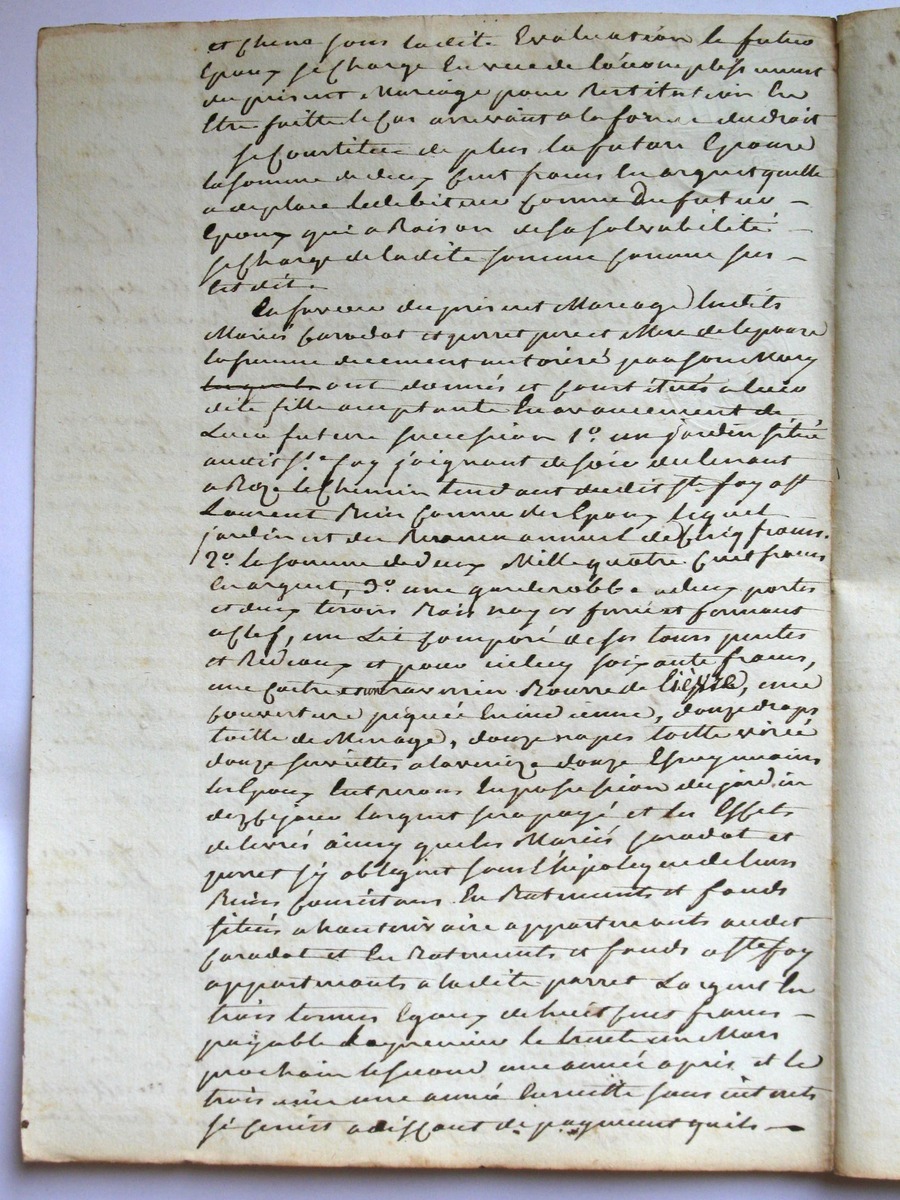 et chene sous ladite Evaluation le futur
Epoux se Charge En vue de l'acomplissement
du present Mariage pour Restitution En
Etre faitte le Cas arrivant a la forme du droit
se Constitue de plus la future Epouse
la somme de deux Cent francs En argent quelle
a deplace le debiteur Connu Du futur –
Epoux qui a Raison de sa solvabilité –
se Charge de ladite somme comme sus –
Est dit.
En faveur du present Mariage lesdits
Mariés Caradot et perret pere et Mere de lepouse
la femme duement autorisé par son Mary
ont donnés et constitués a leur
dite fille acceptante En avancement de
Leur future succession 1o. un jardin situé
audit St.e foy joignant de soir du levant
a Bize le Chemin tendant dudit Ste foy a St
Laurent Bien Connu des Epoux lequel
jardin est du Revenu annuel de Cinq francs.
2o. la somme de deux Mille quatre Cent francs
En argent, 3o. une garderobbe a deux portes
et deux tiroirs Bois noyer ferré et fermant
a Clef, un Lit Composé de ses tours pentes
et Rideaux et pour icelui soixante francs,
une Coitre un traversin Bourre de , une
Couverture piquée En indienne, douze draps
toille de Menage, douze napes toille
douze serviettes a la venize douze Essuymains
les Epoux Entreront En possession du jardin
dez Ce jour largent sera payé et les Effets
delivrés ainsy que les Mariés Caradot et
perret s'y obligent sous l'hipoteque de leurs
Biens Consistans En Batiments et fonds
situés a hauterivoire appartenants audit
Caradot et En Batiments et fonds a Ste foy
appartenants a ladite perret Largent En
trois termes Egaux de huit cens francs –
payable le premier le trente un Mars
prochain le second une année apres et le
troisieme une année Ensuitte sans interets
si ce n'est a deffaut de payement quils –